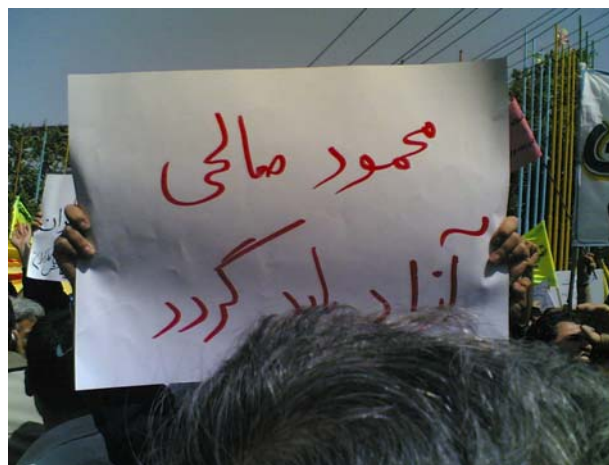 محمود صالحی
آزاد باید گردد